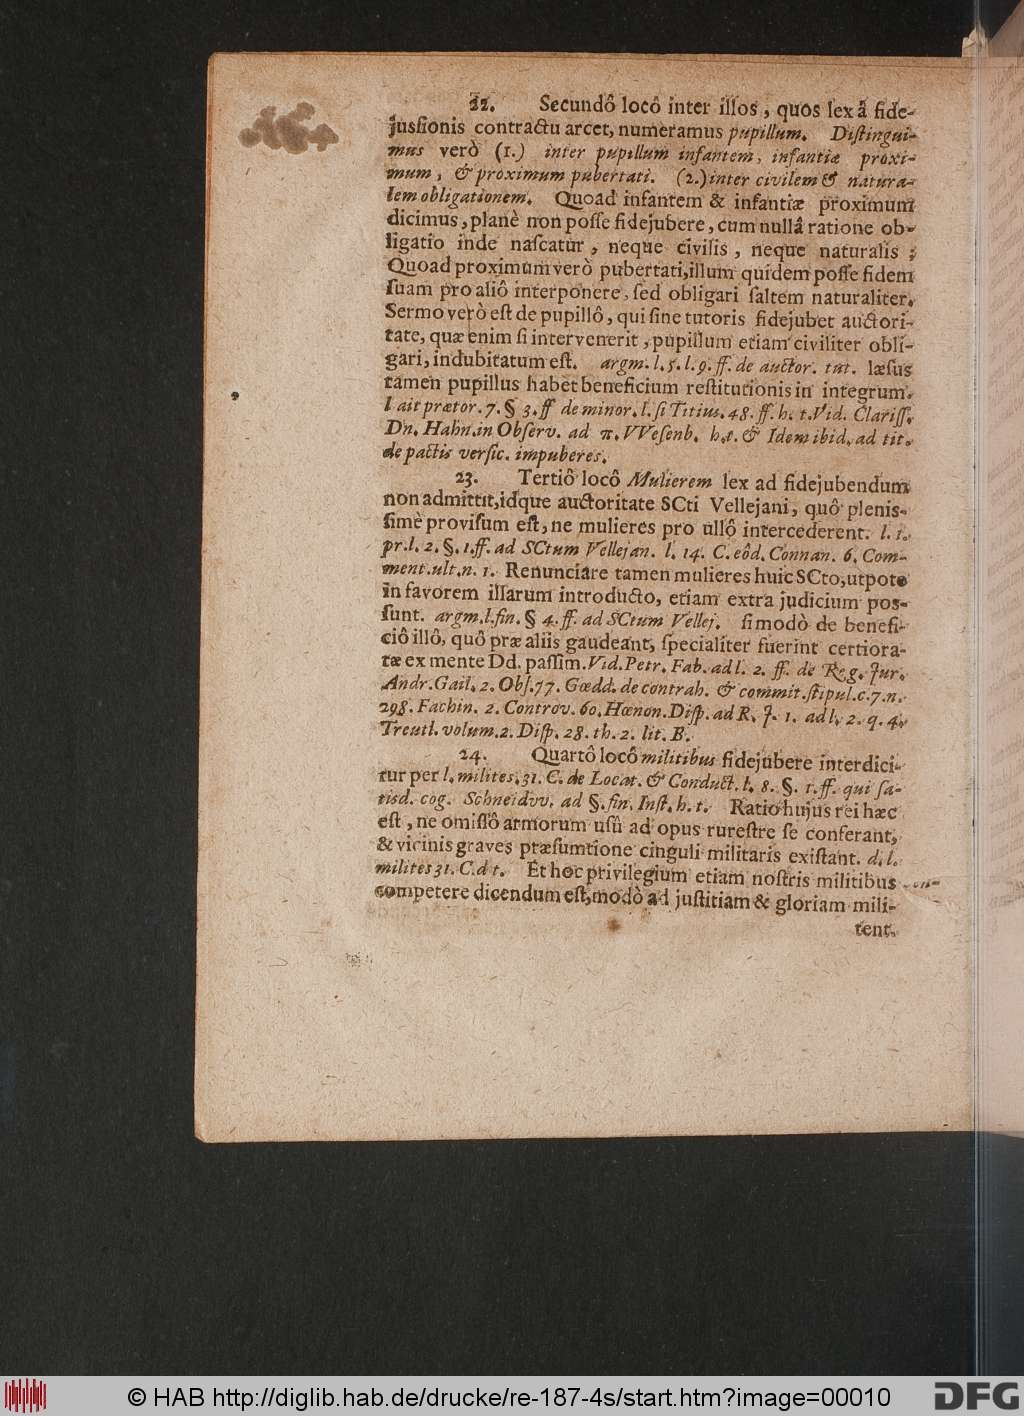 22. Secundô locô inter illos, quos lex â fide-
jussionis contractu arcet, numeramus pupillum. Distingui-
mus verò (1.) inter pupillum infantem, infantiæ proxi-
mum, & proximum pubertati. (2.) inter civilem & natura-
lem obligationem. Quoad infantem & infantiæ proximum
dicimus, planè non posse fidejubere, cum nullâ ratione ob-
ligatio inde nascatur, neque civilis, neque naturalis;
Quoad proximum verò pubertati, illum quidem posse fidem
suam pro aliô interponere, sed obligari saltem naturaliter.
Sermo verò est de pupillô, qui sine tutoris fidejubet auctori-
tate, quæ enim si intervenerit, pupillum etiam civiliter obli-
gari, indubitatum est. argm. l. 5. l. 9. ff. de auctor. tut. læsus
tamen pupillus habet beneficium restitutionis in integrum.
l ait prætor. 7. § 3. ff de minor. l. si Titius. 48. ff. h. t. Vid. Clariss.
Dn. Hahn. in Observ. ad π. VVesenb. h. t. & Idem ibid. ad tit.
de pactis versic. impuberes.
23. Tertiô locô Mulierem lex ad fidejubendum
non admittit, idque auctoritate SCti Vellejani, quô plenis-
simè provisum est, ne mulieres pro ullô intercederent. l. 1.
pr. l. 2. §. 1. ff. ad SCtum Vellejan. l. 14. C. eôd. Connan. 6. Com-
ment. ult. n. 1. Renunciare tamen mulieres huic SCto, utpote
in favorem illarum introducto, etiam extra judicium pos-
sunt. argm. l. fin. § 4. ff. ad SCtum Vellej. si modò de benefi-
ciô illô, quô præ aliis gaudeant, specialiter fuerint certiora-
tæ ex mente Dd. passim. Vid. Petr. Fab. ad l. 2. ff. de Reg. Jur.
Andr. Gail. 2. Obs. 77. Gœdd. de contrah. & commit. stipul. c. 7. n.
298. Fachin. 2. Controv. 60. Hœnon. Disp. ad R. J. 1. ad l. 2. q. 4.
Treutl. volum. 2. Disp. 28. th. 2. lit. B.
24. Quartô locô militibus fidejubere interdici-
tur per l. milites. 31. C. de Locat. & Conduct. l. 8. §. 1. ff. qui sa-
tisd. cog. Schneidvv. ad §. fin. Inst. h. t. Ratio hujus rei hæc
est, ne omissô armorum usû ad opus rurestre se conferant,
& vicinis graves præsumtione cinguli militaris existant. d. l.
milites 31. C. d t. Et hoc privilegium etiam nostris militibus
competere dicendum est, modò ad justitiam & gloriam mili-
tent.
© HAB http://diglib.hab.de/drucke/re-187-4s/start.htm?image=00010
DFG